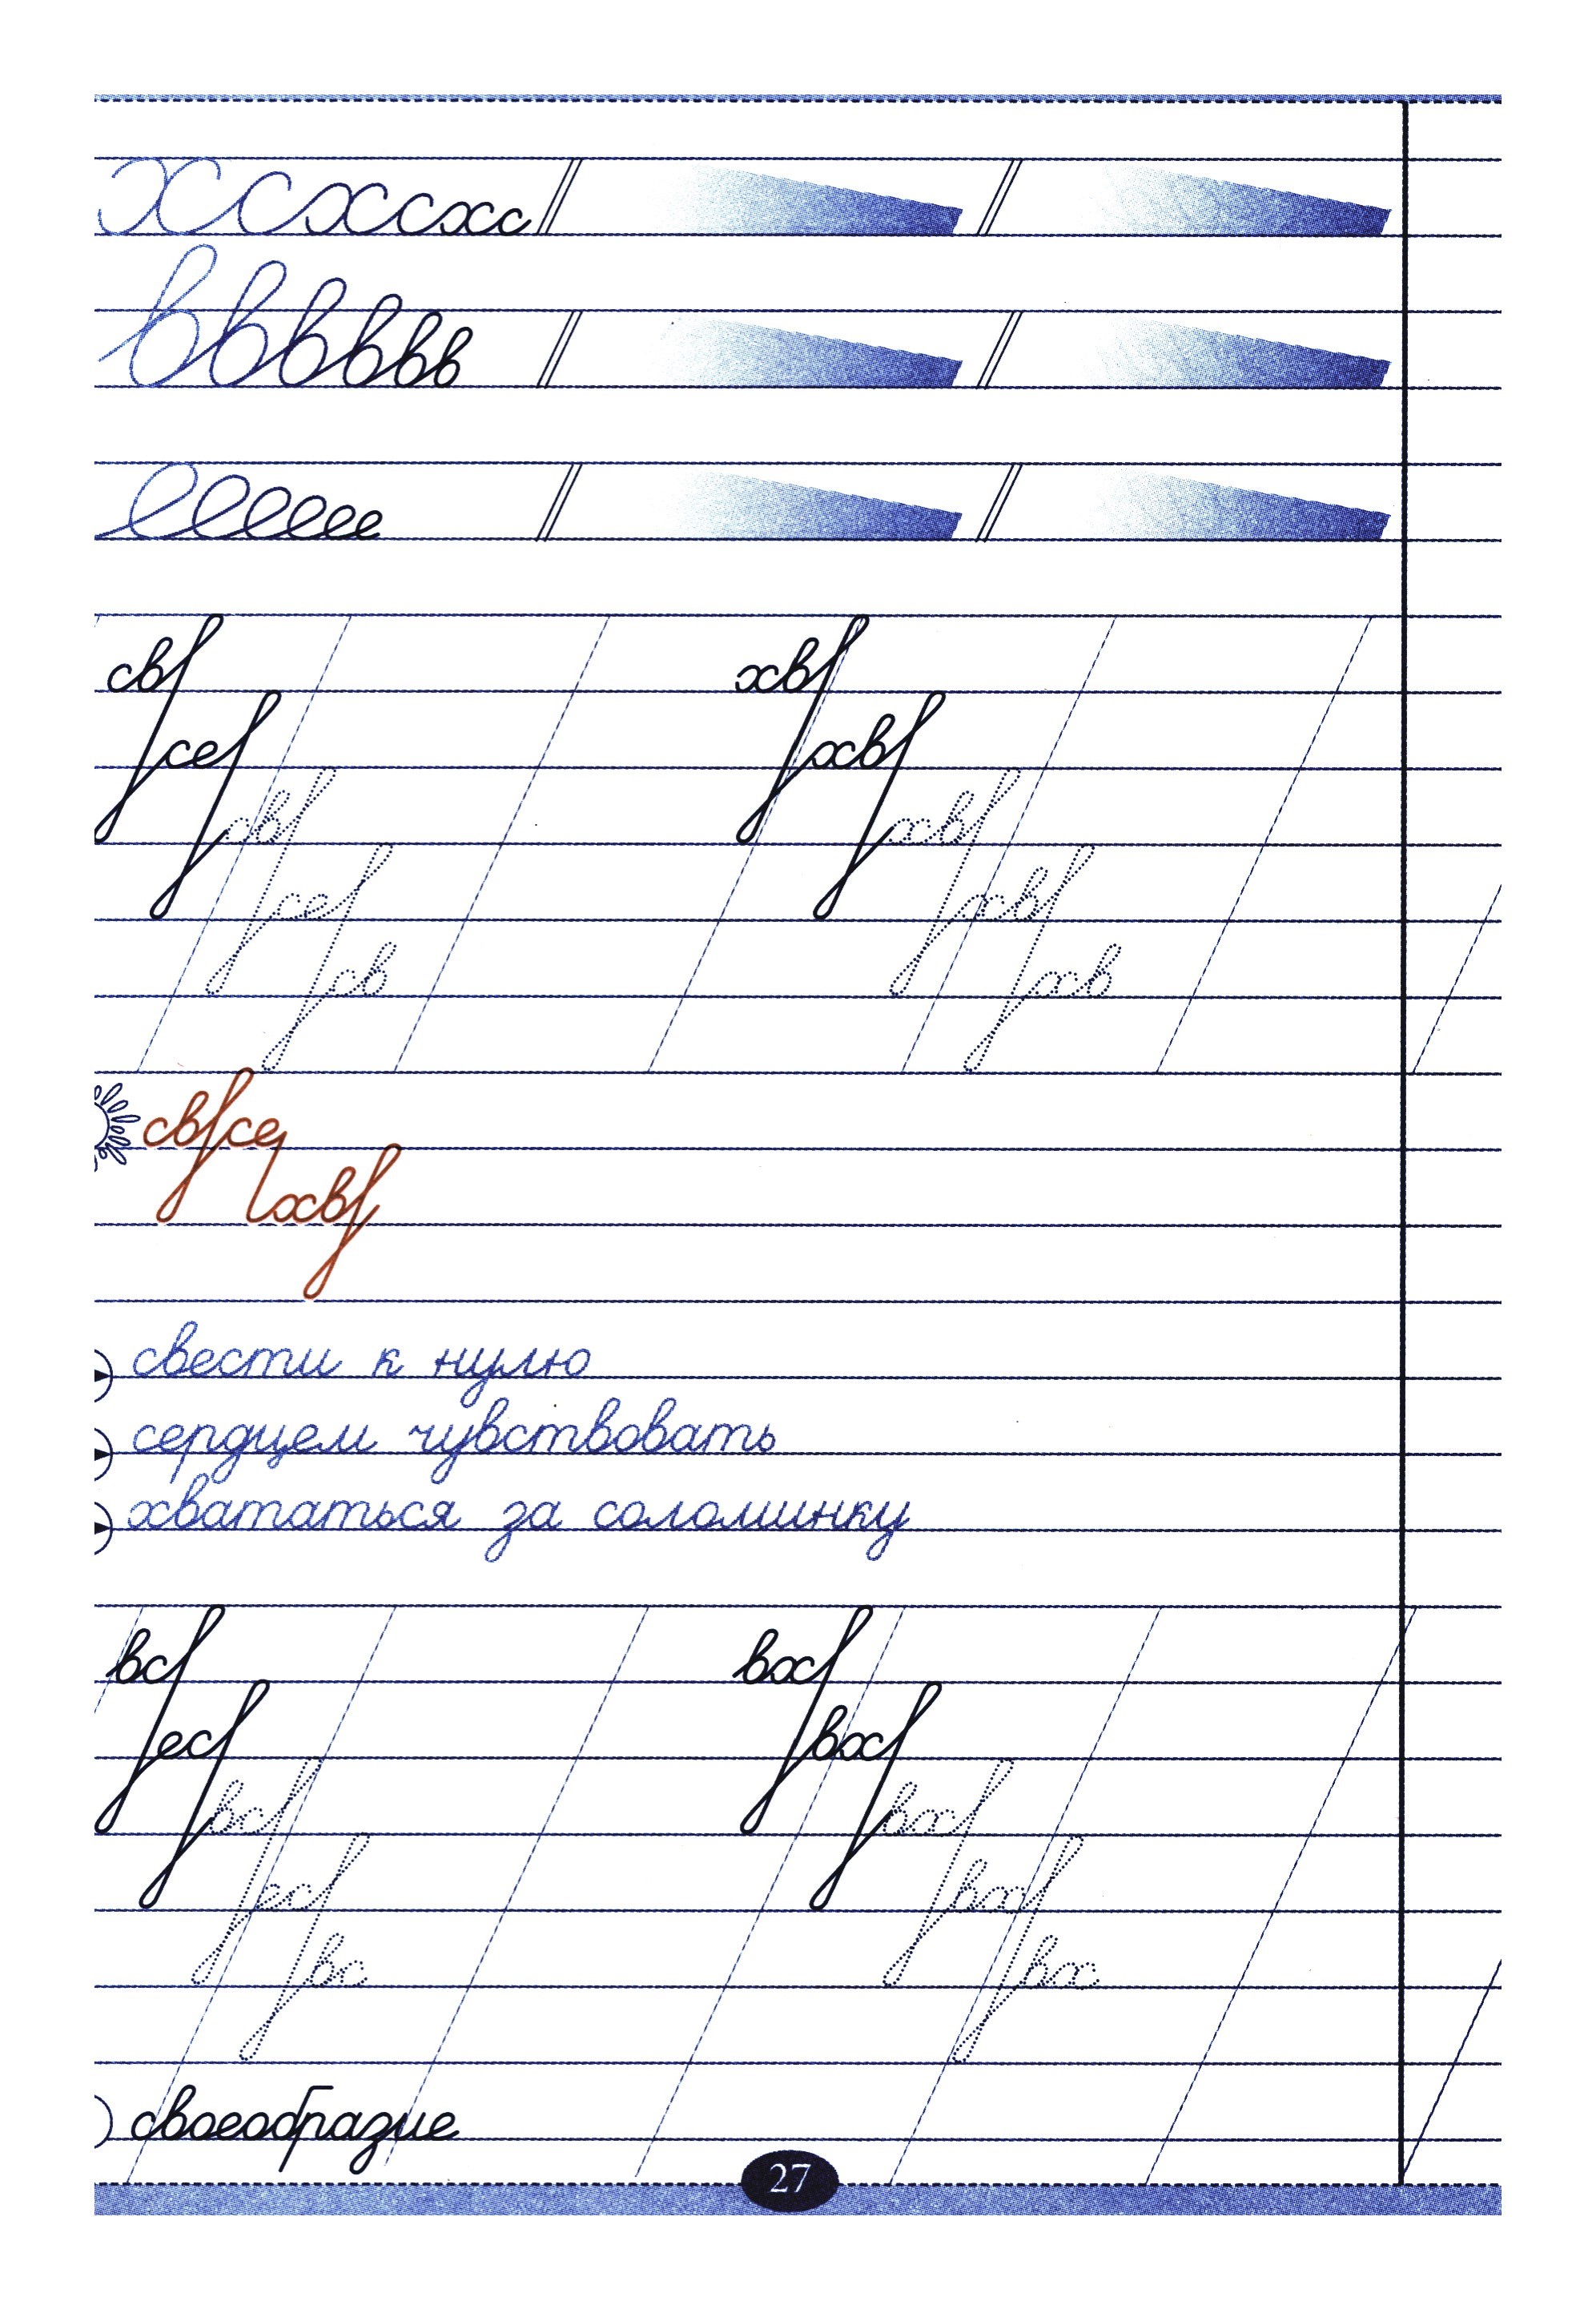 хссхсхс
вввввв
еееееее
св хв
се хв
св хв
се хв
св хв
свсе
хв
свести к нулю
сердцем чувствовать
хвататься за соломинку
вс вх
ес вх
вс вх
ес вх
вс вх
своеобразие
27